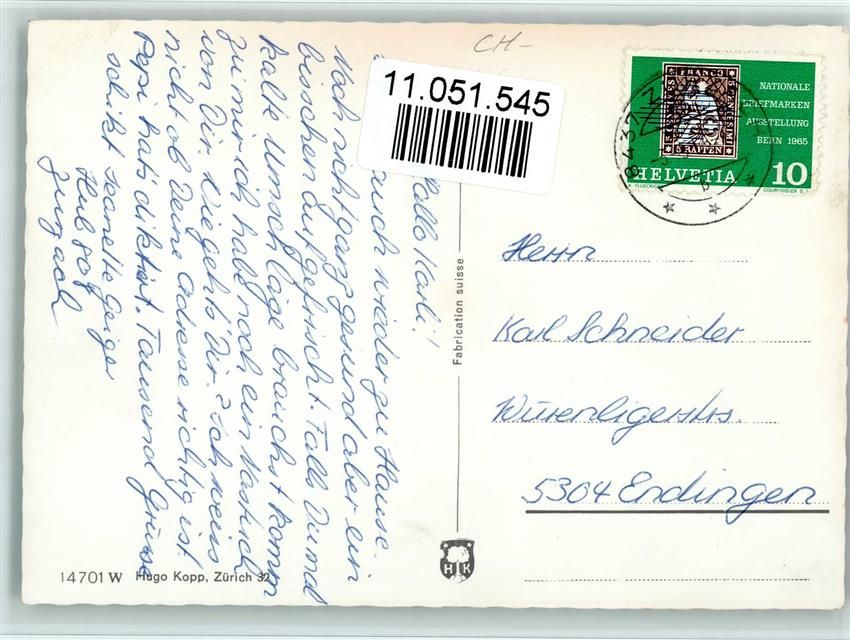 CH-
11.051.545
FRANCO
5 RAPPEN
NATIONALE
BRIEFMARKEN
AUSSTELLUNG
BERN 1965
HELVETIA 10
COURVOISIER S.A.
8437
Hallo Karli!
auch wieder zu Hause.
Noch nicht ganz gesund aber ein
bisschen aufgefrischt. Falls Du mal
kalte Umschläge brauchst komm
zu mir ich hab noch ein Vorrat
von Dir. Wie gehts Dir? Ich weiss
nicht ob Deine Adresse richtig ist
Pepi hats diktiert. Tausend Grüsse
schikt Jeanette Geiger
Zurzach
Fabrication suisse
Herrn
Karl Schneider
Würenligerstrs.
5304 Endingen
14701 W Hugo Kopp, Zürich 32
H K